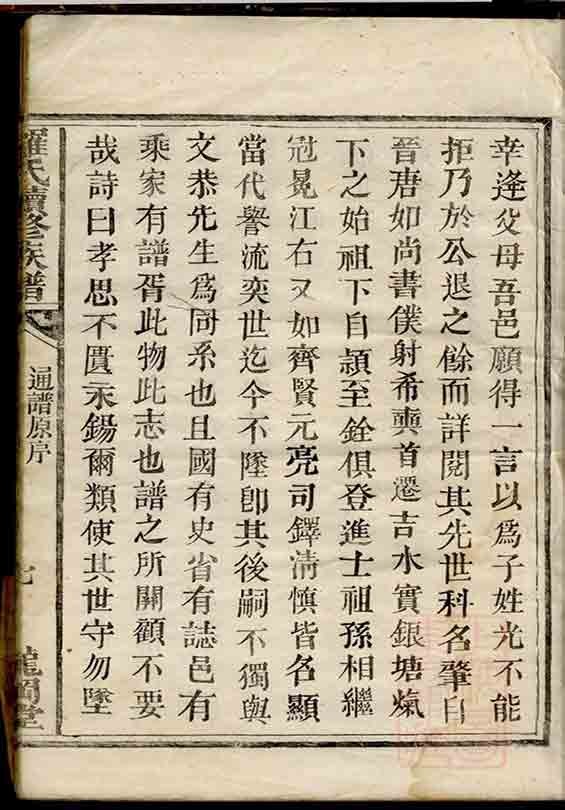 幸逢父母吾邑願得一言以為子姓光不能
拒乃於公退之餘而詳閱其先世科名肇自
晉唐如尚書僕射希奭首遷吉水實銀塘熂
下之始祖下自顗至銓俱登進士祖孫相繼
冠冕江右又如齊賢元亮司鐸清慎皆名顯
當代譽流奕世迄今不墜卽其後嗣不獨與
文恭先生爲同系也且國有史省有誌邑有
乘家有譜胥此物此志也譜之所關顧不要
哉詩曰孝思不匱永錫爾類使其世守勿墜
羅氏續修族譜
通譜原序
七